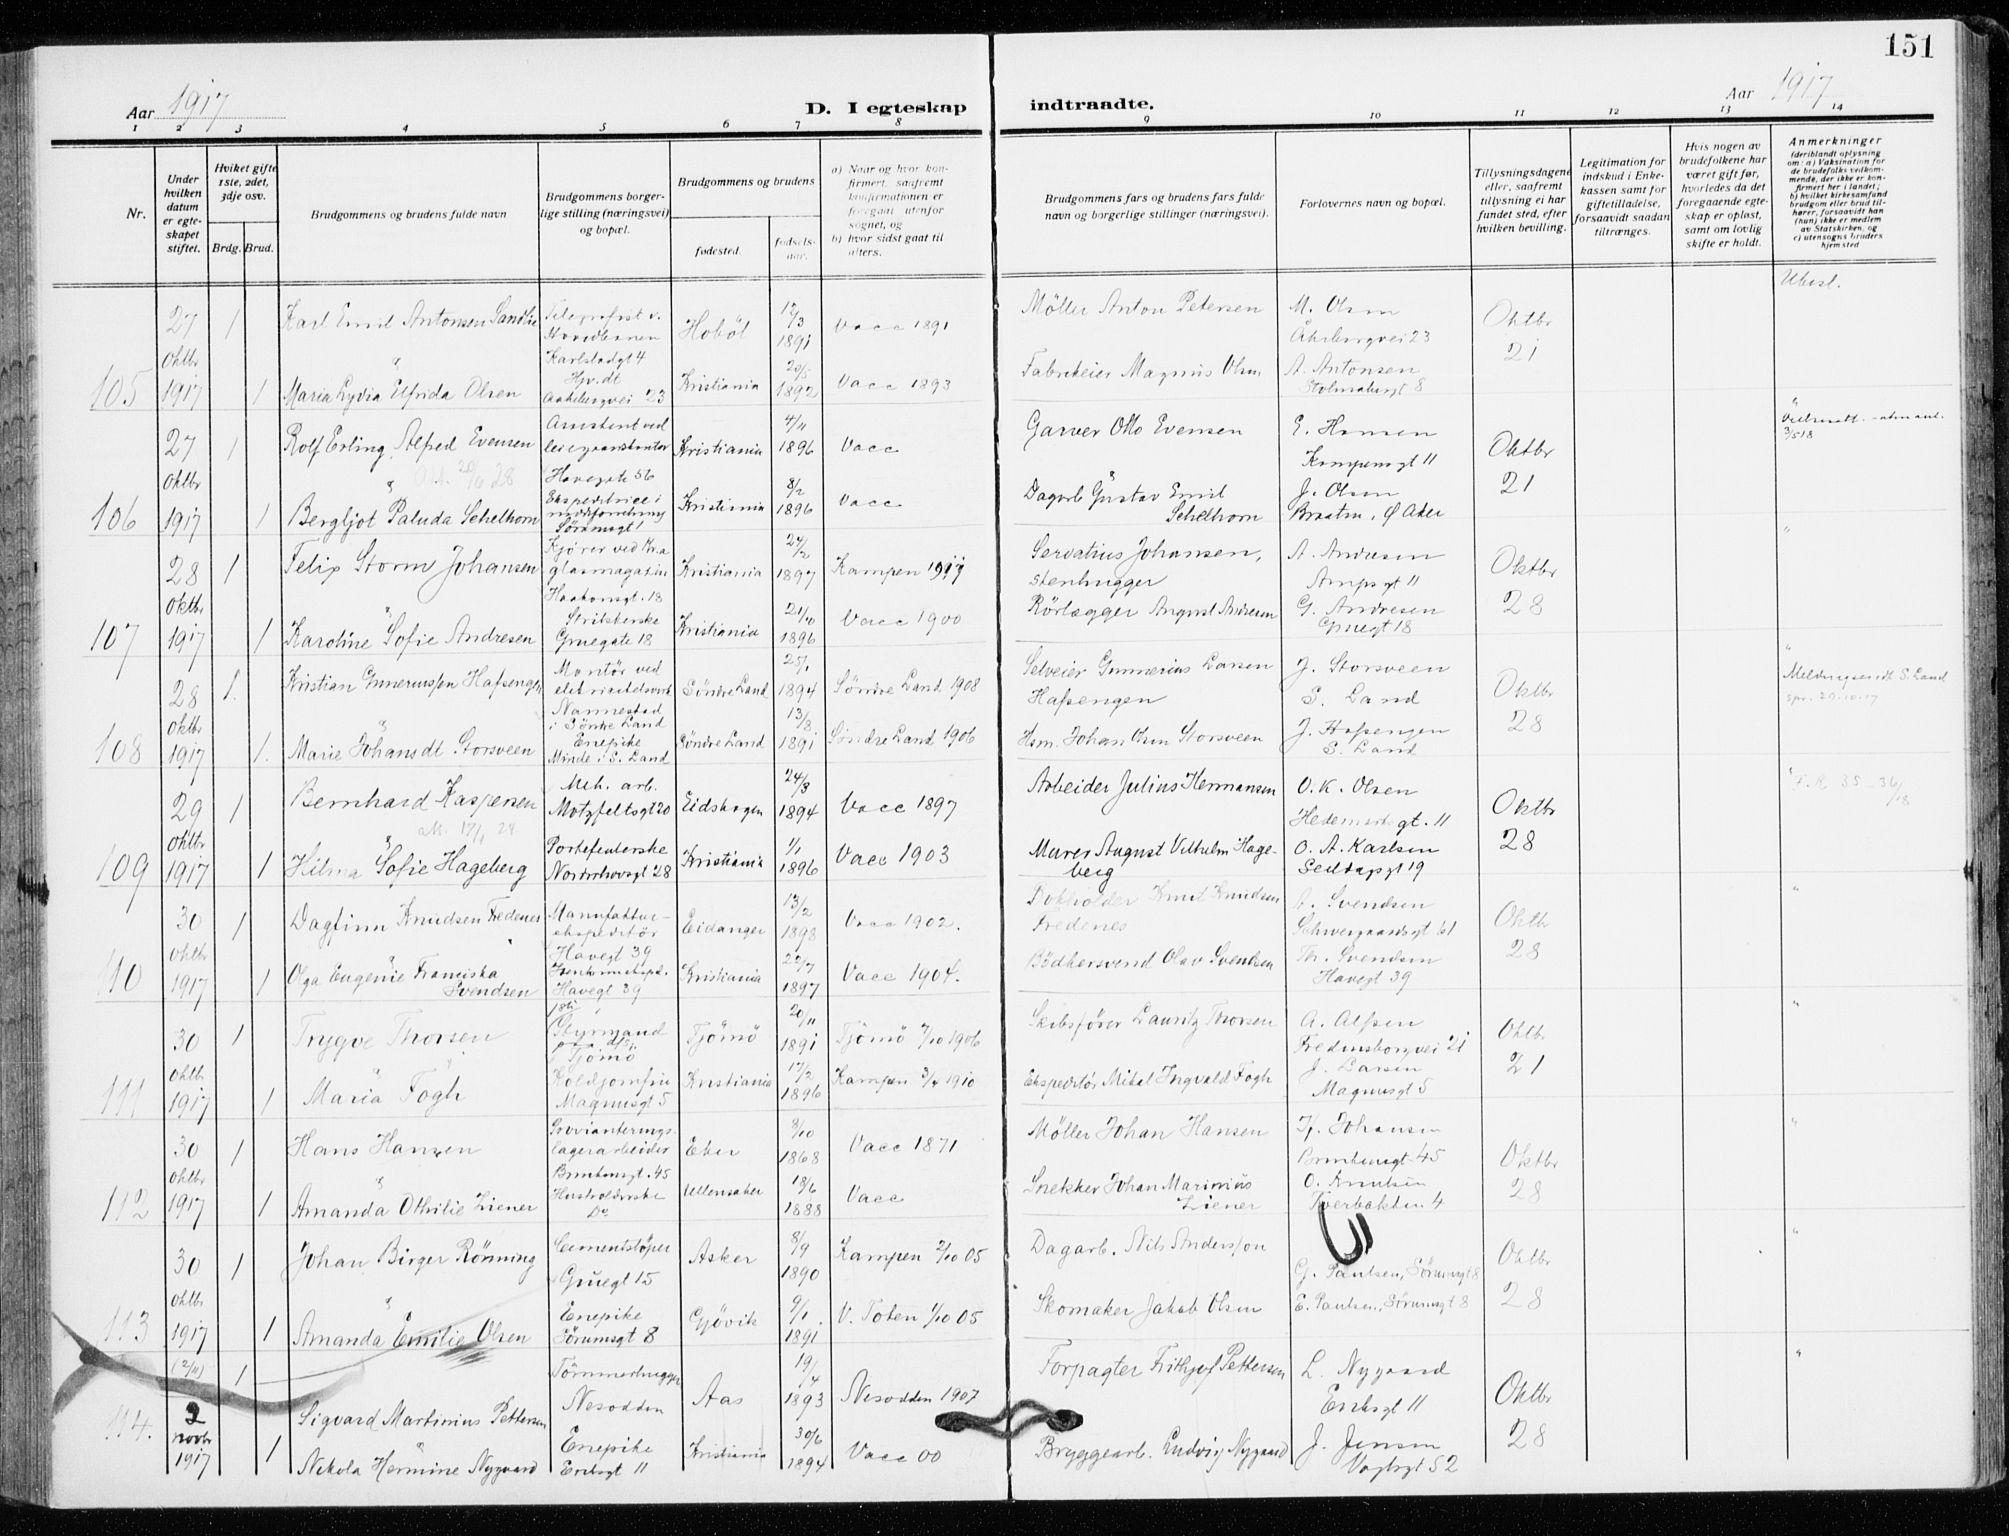 151
Aar 1917
D. I egteskap
indtraadte.
Aar 1917
1 2 3 4 5 6 7 8 9 10 11 12 13 14
Nr.
Under hvilken datum er egteskapet stiftet.
Hvilket gifte 1ste, 2det, 3dje osv.
Brdg. Brud.
Brudgommens og brudens fulde navn
Brudgommens borgerlige stilling (næringsvei) og bopæl.
Brudgommens og brudens
fødested.
fødselsaar.
a) Naar og hvor konfirmert, saafremt konfirmationen er foregaat utenfor sognet, og
b) hvor sidst gaat til alters.
Brudgommens fars og brudens fars fulde navn og borgerlige stillinger (næringsvei).
Forlovernes navn og bopæl.
Tillysningsdagene eller, saafremt tillysning ei har fundet sted, efter hvilken bevilling.
Legitimation for indskud i Enkekassen samt for giftetilladelse, forsaavidt saadan tiltrænges.
Hvis nogen av brudefolkene har været gift før, hvorledes da det foregaaende egteskap er opløst, samt om lovlig skifte er holdt.
Anmerkninger (deriblandt oplysning om: a) Vaksination for de brudefolks vedkommende, der ikke er konfirmert her i landet; b) hvilket kirkesamfund brudgom eller brud tilhører, forsaavidt han (hun) ikke er medlem av Statskirken, og c) utensogns bruders hjemsted
27 1 Karl Emil Antonsen Sandlie Telegrafist v. Hovedbanen Karlstadgt 4 Hobøl 12/3 1891 Vacc 1891 Møller Anton Petersen M. Olsen Åkebergvei 23 Oktbr 21
105 Oktbr 1917 1 Maria Lydia Elfrida Olsen Hjv. dt Aakebergvei 23 Kristiania 1892 Vacc 1893 Fabrikeier Magnus Olsen A. Antonsen 8
27 1 Rolf Erling Alfred Evensen Assistent ved Havegate 56 Kristiania 4/11 1896 Vacc Garver Otto Evensen E. Hansen Kampensgt 11 Oktbr 21
106 Oktbr 1917 1 Bergljot Paluda Schelhorn Sørumsgt 1 Kristiania 8/2 1896 Vacc Dagarb Gustav Emil Schelhorn J. Olsen Braaten, Ø Aker
28 1 Felix Storm Johansen Kjører ved Kr.a glasmagasin Haakonsgt. 13 Kristiania 24/2 1897 Kampen 1911 Servatius Johansen, stenhugger A. Andresen Ampsgt 11 Oktbr 28
107 Oktbr 1917 1 Karoline Sofie Andresen Gruegate 18 Kristiania 21/10 1896 Vacc 1900 Rørlægger August Andresen G. Andresen Gruegt 18
28 1. Kristian Gunneriussen Hafsengen Montør ved Nannestad i Søndre Land Søndre Land 25/1 1894 Søndre Land 1908 Selveier Gunnerius Larsen Hafsengen J. Storsveen S. Land Oktbr 28 S. Land spr. 29.10.17
108 Oktbr 1917 1. Marie Johansdt. Storsveen Enepike Minde i S. Land Søndre Land 13/8 1891 Søndre Land 1906 Hsm. Johan Olsen Storsveen J. Hafsengen S. Land
29 1 Bernhard Kaspersen Mek. arb. Motzfeltsgt 20 Eidskogen 24/3 1894 Vacc 1897 Arbeider Julius Hermansen O. K. Olsen Hedemarksgt. 11 Oktbr 28 F.R. 35-36/18
109 Oktbr 1917 1 Hilma Sofie Hageberg Portefeulerske Norderhovsgt 28 Kristiania 1/1 1896 Vacc 1903 Murer August Vilhelm Hageberg O. A. Karlsen 19
30 1 Dagfinn Knudsen Fredenes Manufakturekspeditør Havegt 39 Eidanger 13/2 1898 Vacc 1902. Bokholder Knut Knudsen Fredenes A. Svendsen Schwergaardsgt 61 Oktbr 28
110 Oktbr 1917 1 Olga Eugenie Franciska Svendsen Havegt 39 Kristiania 22/7 1897 Vacc 1904. Bødkersvend Olav Svendsen Th. Svendsen Havegt 39
30 1 Trygve Thorsen Styrmand Tjømø Tjømø 20/11 1891 Tjømø 7/10 1906 Skibsfører Lauritz Thorsen A. Alfsen Fredensborgvei 21 Oktbr 21
111 Oktbr 1917 1 Maria Fogh Koldjomfru Magnusgt 5 Kristiania 17/2 1896 Kampen 3/4 1910 Ekspeditør Mikal Ingvald Fogh J. Larsen Magnusgt 5
30 1 Hans Hansen Provianteringslagerarbeider Brinkensgt. 45 Eker 8/10 1868 Vacc 1871 Møller Johan Hansen Johansen Brinkensgt 45 Oktbr 28
112 Oktbr 1917 1 Amanda Othilie Liener Husholderske Do Ullensaker 18/6 1888 Vacc Snekker Johan Marinius Liener O. Knutsen Tverbakken 4
30 1 Johan Birger Rønning Cementstøper Gruegt 15 Asker 8/9 1890 Kampen 2/10 05 Dagarb. Nils Andersson G. Paulsen, Sørumsgt 8 Oktbr 28
113 Oktbr 1917 1 Amanda Emilie Olsen Enepike Sørumsgt 8 Gjøvik 9/1 1891 V. Toten 1/10 05 Skomaker Jakob Olsen E. Paulsen, Sørumsgt 8
(2/11) 1 Sigvard Martinius Pettersen Tømmerhugger Nesodden Aas 19/4 1893 Nesodden 1907 Forpagter Frithjof Pettersen L. Nygaard Eriksgt 11 Oktbr 28
114. 2 novbr 1917 1 Nikola Hermine Nygaard Enepike Eriksgt 11 Kristiania 30/6 1894 Vacc 00 Bryggearb. Ludvig Nygaard J. Jensen Vogtsgt 52